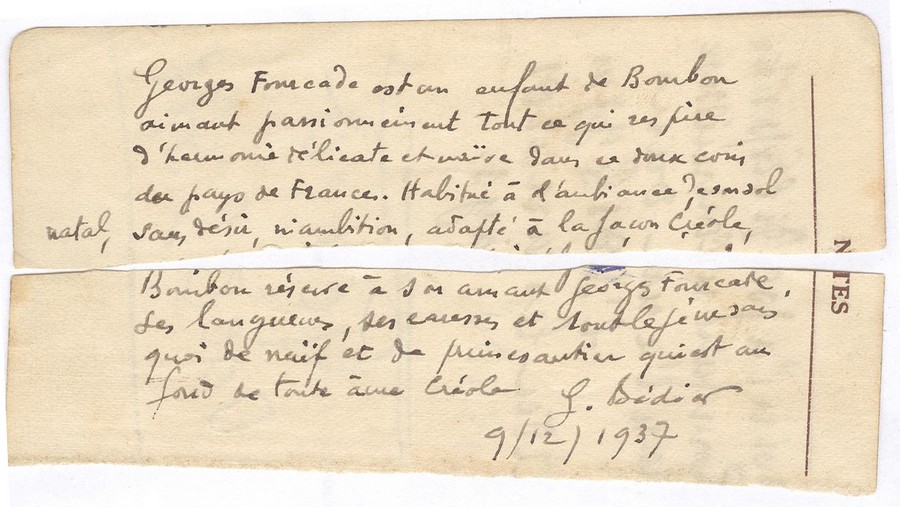 Georges Fourcade est un enfant de Bourbon
aimant passionnément tout ce qui respire
d'harmonie délicate et naïve dans ce doux coin
du pays de France. Habitué à l'ambiance de son sol
natal, sans désir, ni ambition, adapté à la façon Créole,
Bourbon réserve à son amant Georges Fourcade,
ses langueurs, ses caresses et tout le je ne sais
quoi de naïf et de primesautier qui est au
fond de toute âme Créole
G. Bédier
9/12/1937
NOTES